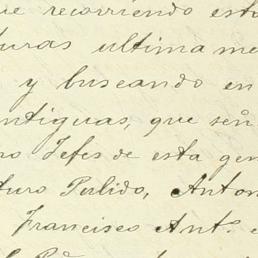 ue recorriendo esta
turas ultima me
y buscando en
ntiguas, que señ
ro Jefes de esta gen
turo Pulido, Anton
Francisco Antº.